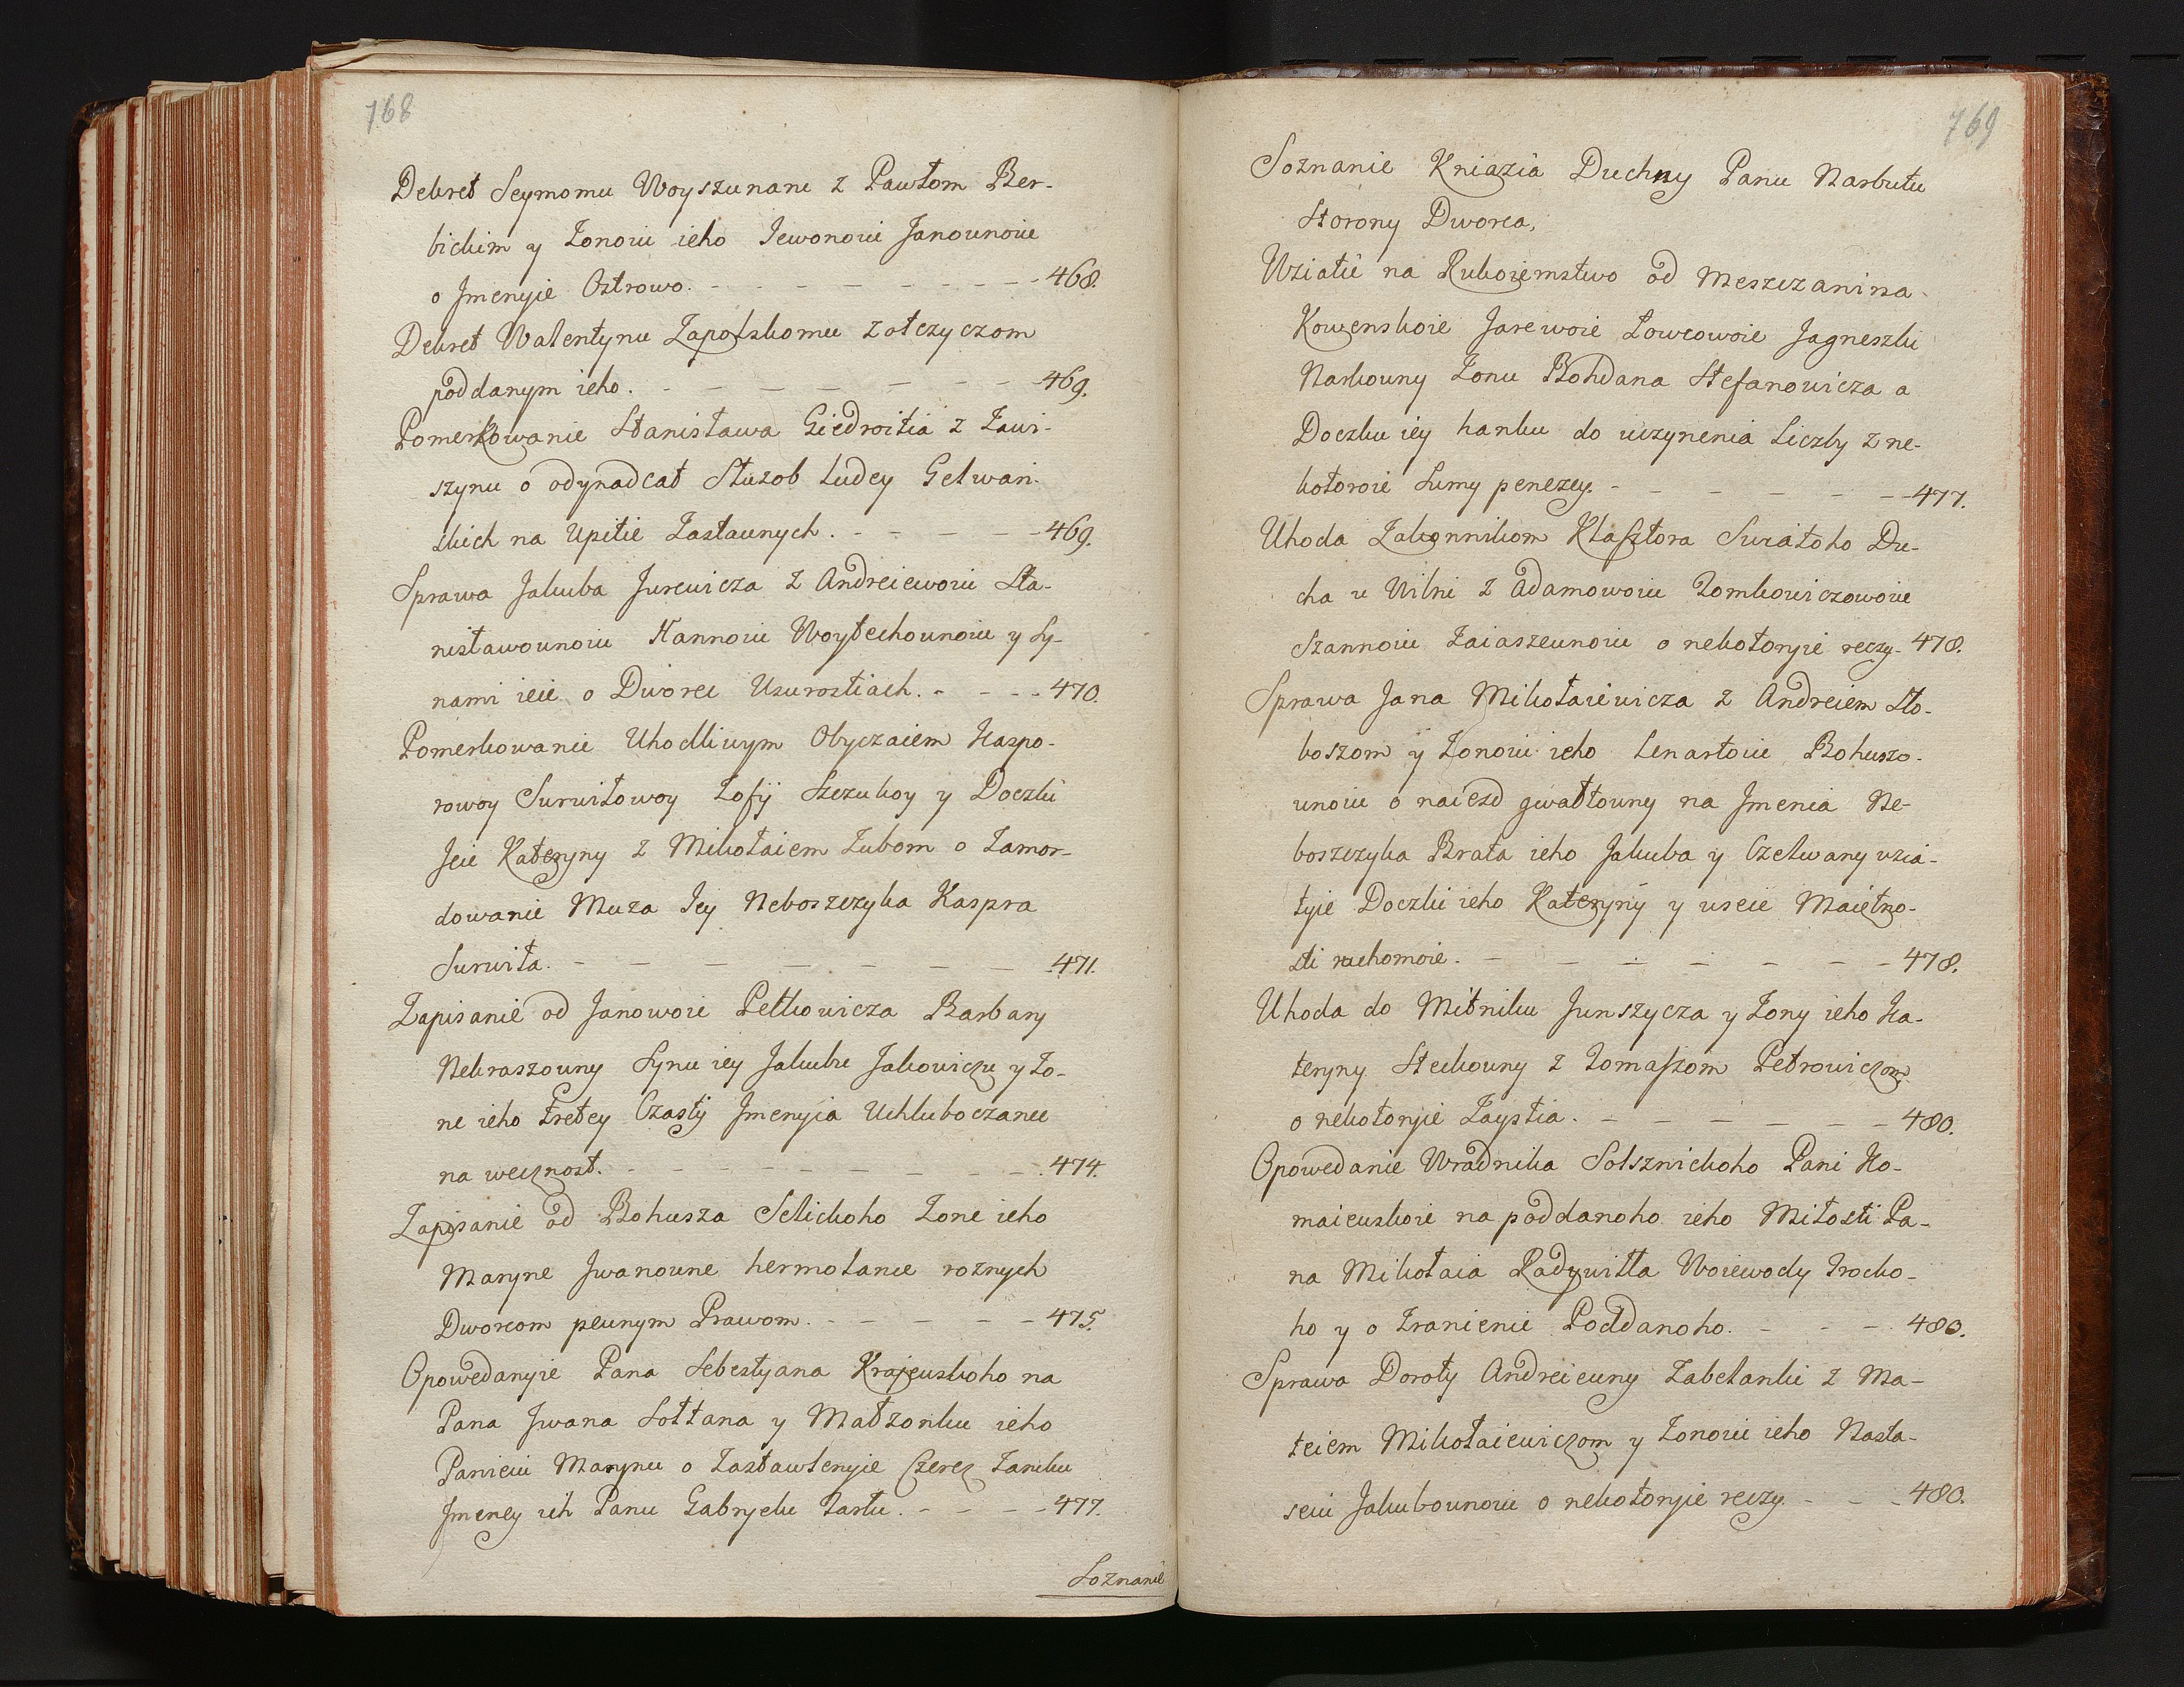 768
Dekret Seymomu Woyszunanu z Pawłom Ber-
bickim y Żonoiu ieho Jewonoiu Janounoiu
o Jmenyie Ostrowo. - - - - - - - - - 468.
Dekret Walentynu Zapolskomu z otczyczom
poddanym ieho. - - - - - - - 469.
Pomerkowanie Stanisława Giedroitia z Zawi-
szynu o odynadcat Służob Ludey Gelwan-
skich na Upitie Zastaunych. - - - - - 469.
Sprawa Jakuba Jurewicza z Andreiewoiu Sta-
nisławounoiu Hannoiu Woytechounoiu y Sy-
nami ieie o Dworec Uzurostiach. - - - - 470.
Pomerkowanie Uhodliwym Obyczaiem Kaspo-
rowoy Surwiłowoy Zofij Szczukoy y Doczki
Jeie Kateryny z Mikołaiem Zubom o Zamor-
dowanie Muża Jey Neboszczyka Kaspra
Surwiła. - - - - - - - 471.
Zapisanie od Janowoie Petkowicza Barbary
Nekraszouny Synu iey Jakubu Jakowiczu y Żo-
ne ieho Tretey Czasty Jmenyia Uchluboczanee
na wecznost. - - - - - - - - - 474.
Zapisanie od Bohusza Selickoho Żone ieho
Maryne Jwanoune hermołance roznych
Dworcom peunym Prawom. - - - - - 475.
Opowedanyie Pana Sebestyana Krajeuskoho na
Pana Jwana Sołtana y Małzonku ieho
Panieiu Marynu o Zastawlenyie Czerez Zamku
Jmeney ich Panu Gabryelu Tarlu. - - - 477.
Soznanie
769
Soznanie Kniazia Duchny Panu Narbutu
Storony Dworca,
Uziatie na Rukoiemstwo od Meszczanina
Kowenskoie Jarewoie Łowcowoie Jagneszki
Narkouny Żonu Bohdana Stefanowicza a
Doczku iey hanku do uczynenia Liczby z ne-
kotoroie Sumy penezey. - - - - - 477.
Uhoda Zakonnikom Klasztora Swiatoho Du-
cha u Wilni z Adamowoiu Tomkowiczowoiu
Szannoiu Zaiaszeunoiu o nekotoryie reczy - 478.
Sprawa Jana Mikołaiewicza z Andreiem Sto-
boszom y Żonoiu ieho Lenartoiu Bohuszo-
unoiu o naiezd gwałtouny na Jmenia Ne-
boszczyka Brata ieho Jakuba y Czelwany uzia-
tyie Doczki ieho Kateryny y useie Maietno-
sti ruchomoie. - - - - - - - 478.
Uhoda do Mitniku Junszycza y Żony ieho Ka-
teryny Steckouny z Tomaszom Petrowiczom
o nekotoryie Zaystia. - - - - - - 480.
Opowedanie Wradnika Solsznickoho Pani Ho-
maieuskoie na poddanoho ieho Miłosti Pa-
na Mikołaia Radywiłła Woiewody Trocko-
ho y o Zranienie Poddanoho. - - - 480.
Sprawa Doroty Andreieuny Zabelanki z Ma-
teiem Mikołaiewiczom y Żonoiu ieho Nasta-
seiu Jakubounoiu o nekotoryie reczy. - - - 480.